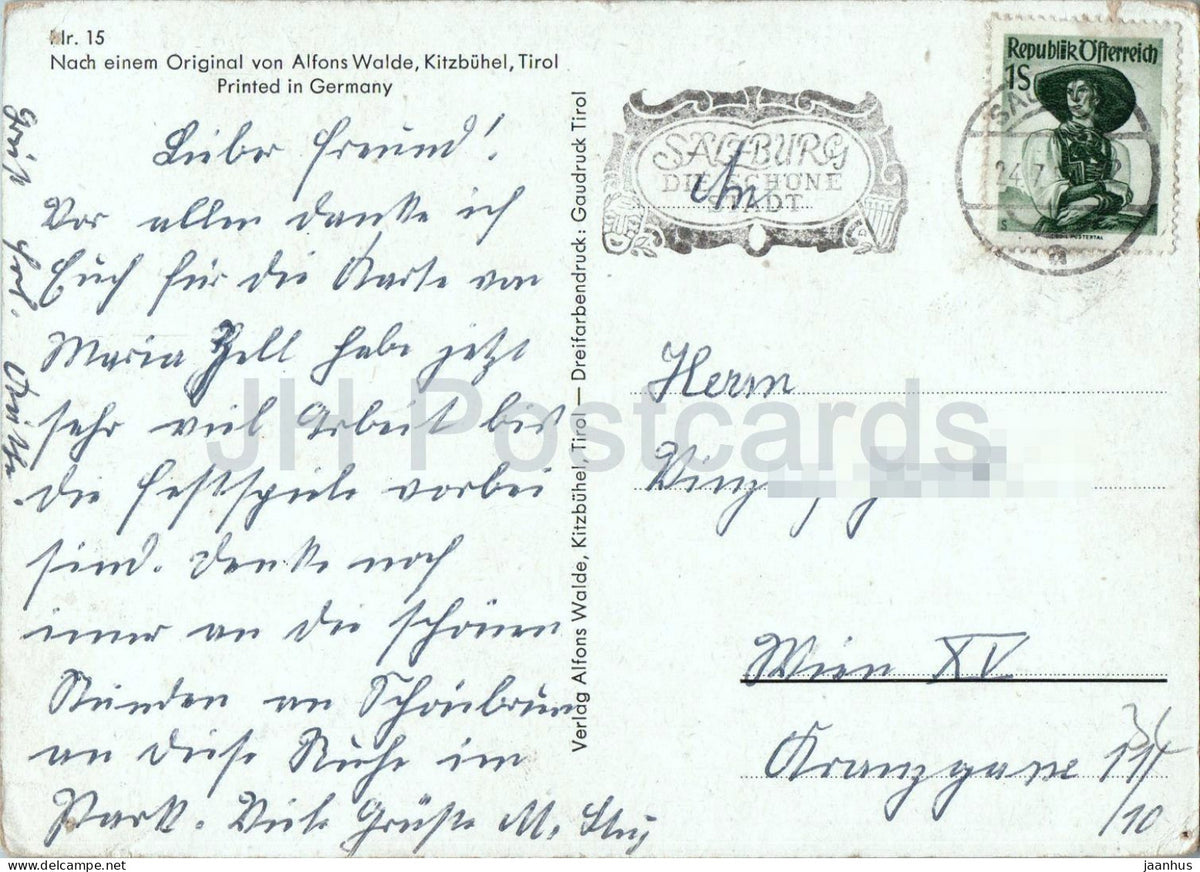 Nr. 15
Nach einem Original von Alfons Walde, Kitzbühel, Tirol
Printed in Germany
Lieber Freund!
Vor allem danke ich
Euch für die Karte von
Maria Zell habe jetzt
sehr viel Arbeit bis
die Festspiele vorbei
sind. Denke noch
immer an die schönen
Stunden an Schönbrunn
an diese Ruhe im
Park. Viele Grüße M.
Verlag Alfons Walde, Kitzbühel, Tirol — Dreifarbendruck: Gaudruck Tirol
SALZBURG
DIE SCHÖNE
STADT
An
Republik Österreich
1S
24.7
a
Herrn
Vinz
Wien XV
Kranzgasse
/10
JH Postcards
jaanhus